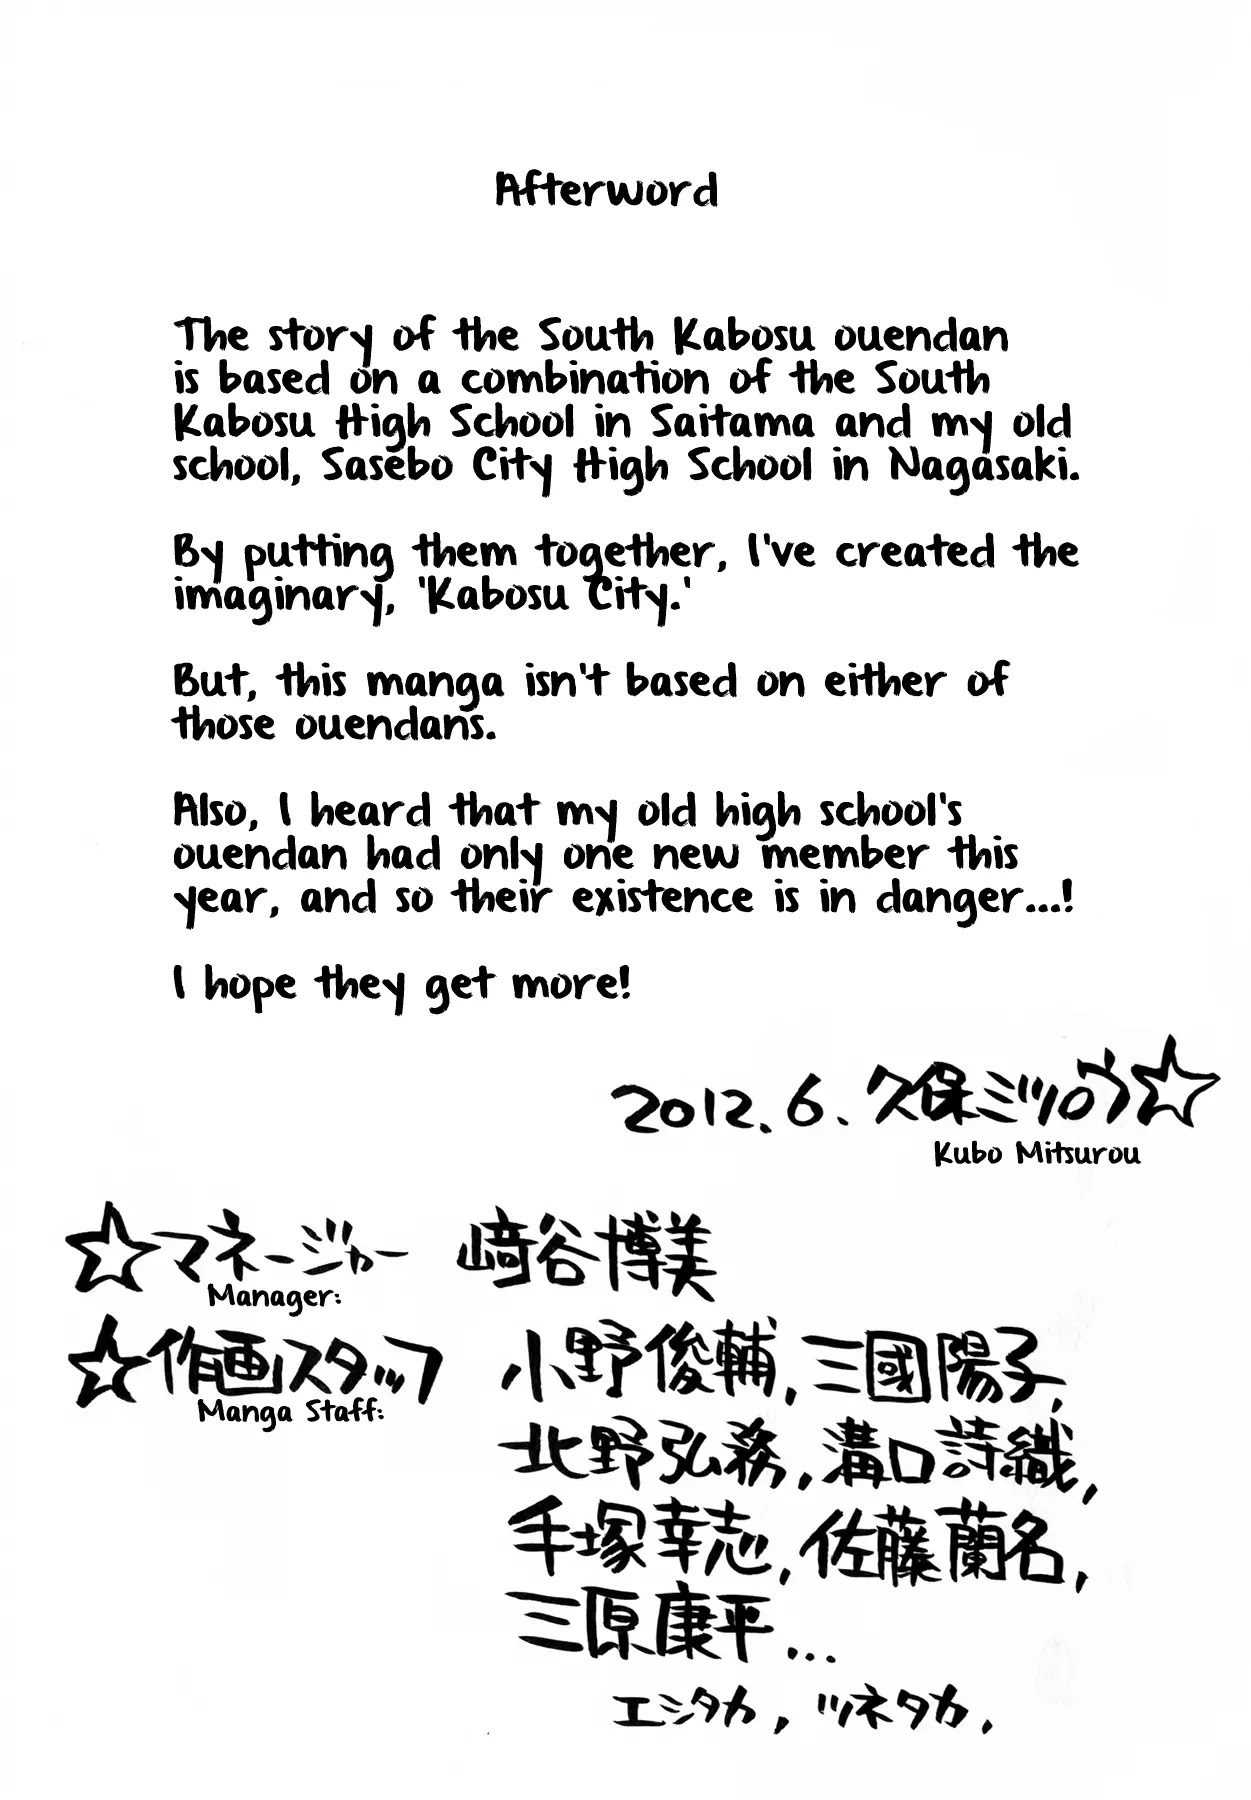 Afterword
The story of the South Kabosu ouendan
is based on a combination of the South
Kabosu High School in Saitama and my old
school, Sasebo City High School in Nagasaki.
By putting them together, I've created the
imaginary, 'Kabosu City.'
But, this manga isn't based on either of
those ouendans.
Also, I heard that my old high school's
ouendan had only one new member this
year, and so their existence is in danger...!
I hope they get more!
2012.6. 久保ミツロウ☆
Kubo Mitsurou
☆マネージャー 﨑谷博美
Manager:
☆作画スタッフ 小野俊輔, 三國陽子,
Manga Staff:
北野弘務, 溝口詩織,
手塚幸志, 佐藤蘭名,
三原康平...
エシタカ, ツネタカ,